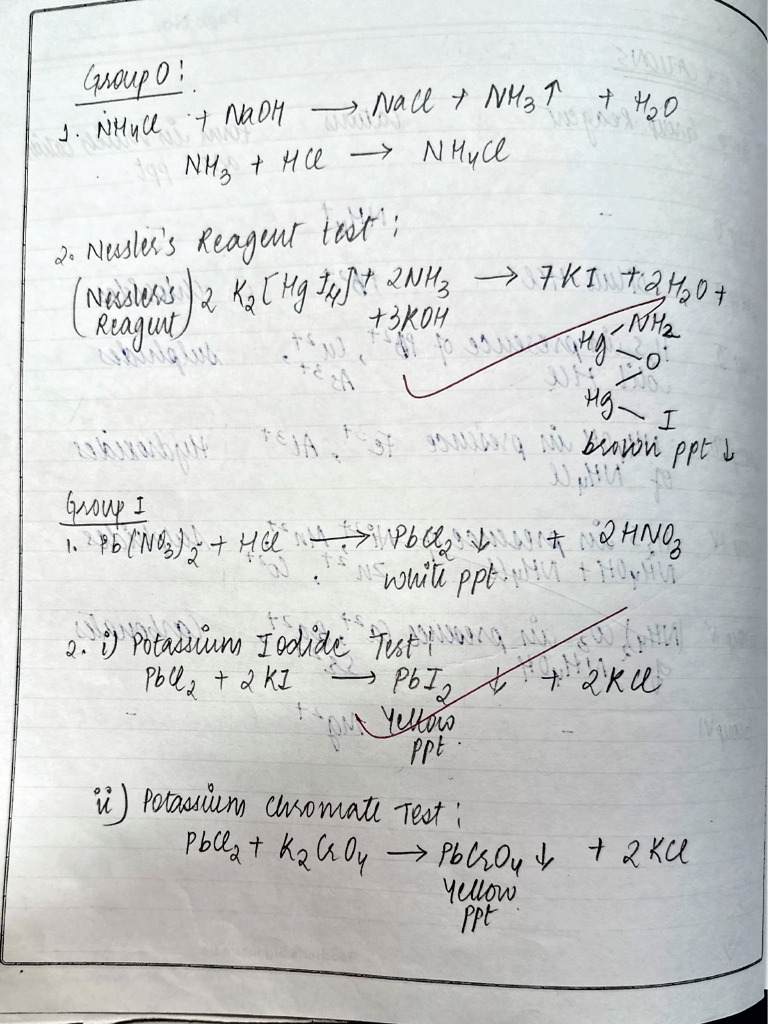 Group 0:
1. NH4Cl + NaOH → NaCl + NH3↑ + H2O
NH3 + HCl → NH4Cl
2. Nessler's Reagent test:
(Nessler's Reagent) 2 K2[HgI4] + 2NH3 → 7KI + 2H2O +
+3KOH
NH2
Hg
O
Hg
I
brown ppt ↓
Group I
1. Pb(NO3)2 + HCl → PbCl2 ↓ + 2HNO3
white ppt
2. i) Potassium Iodide Test:
PbCl2 + 2KI → PbI2 ↓ + 2KCl
Yellow
ppt.
ii) Potassium Chromate Test:
PbCl2 + K2CrO4 → PbCrO4 ↓ + 2KCl
Yellow
ppt